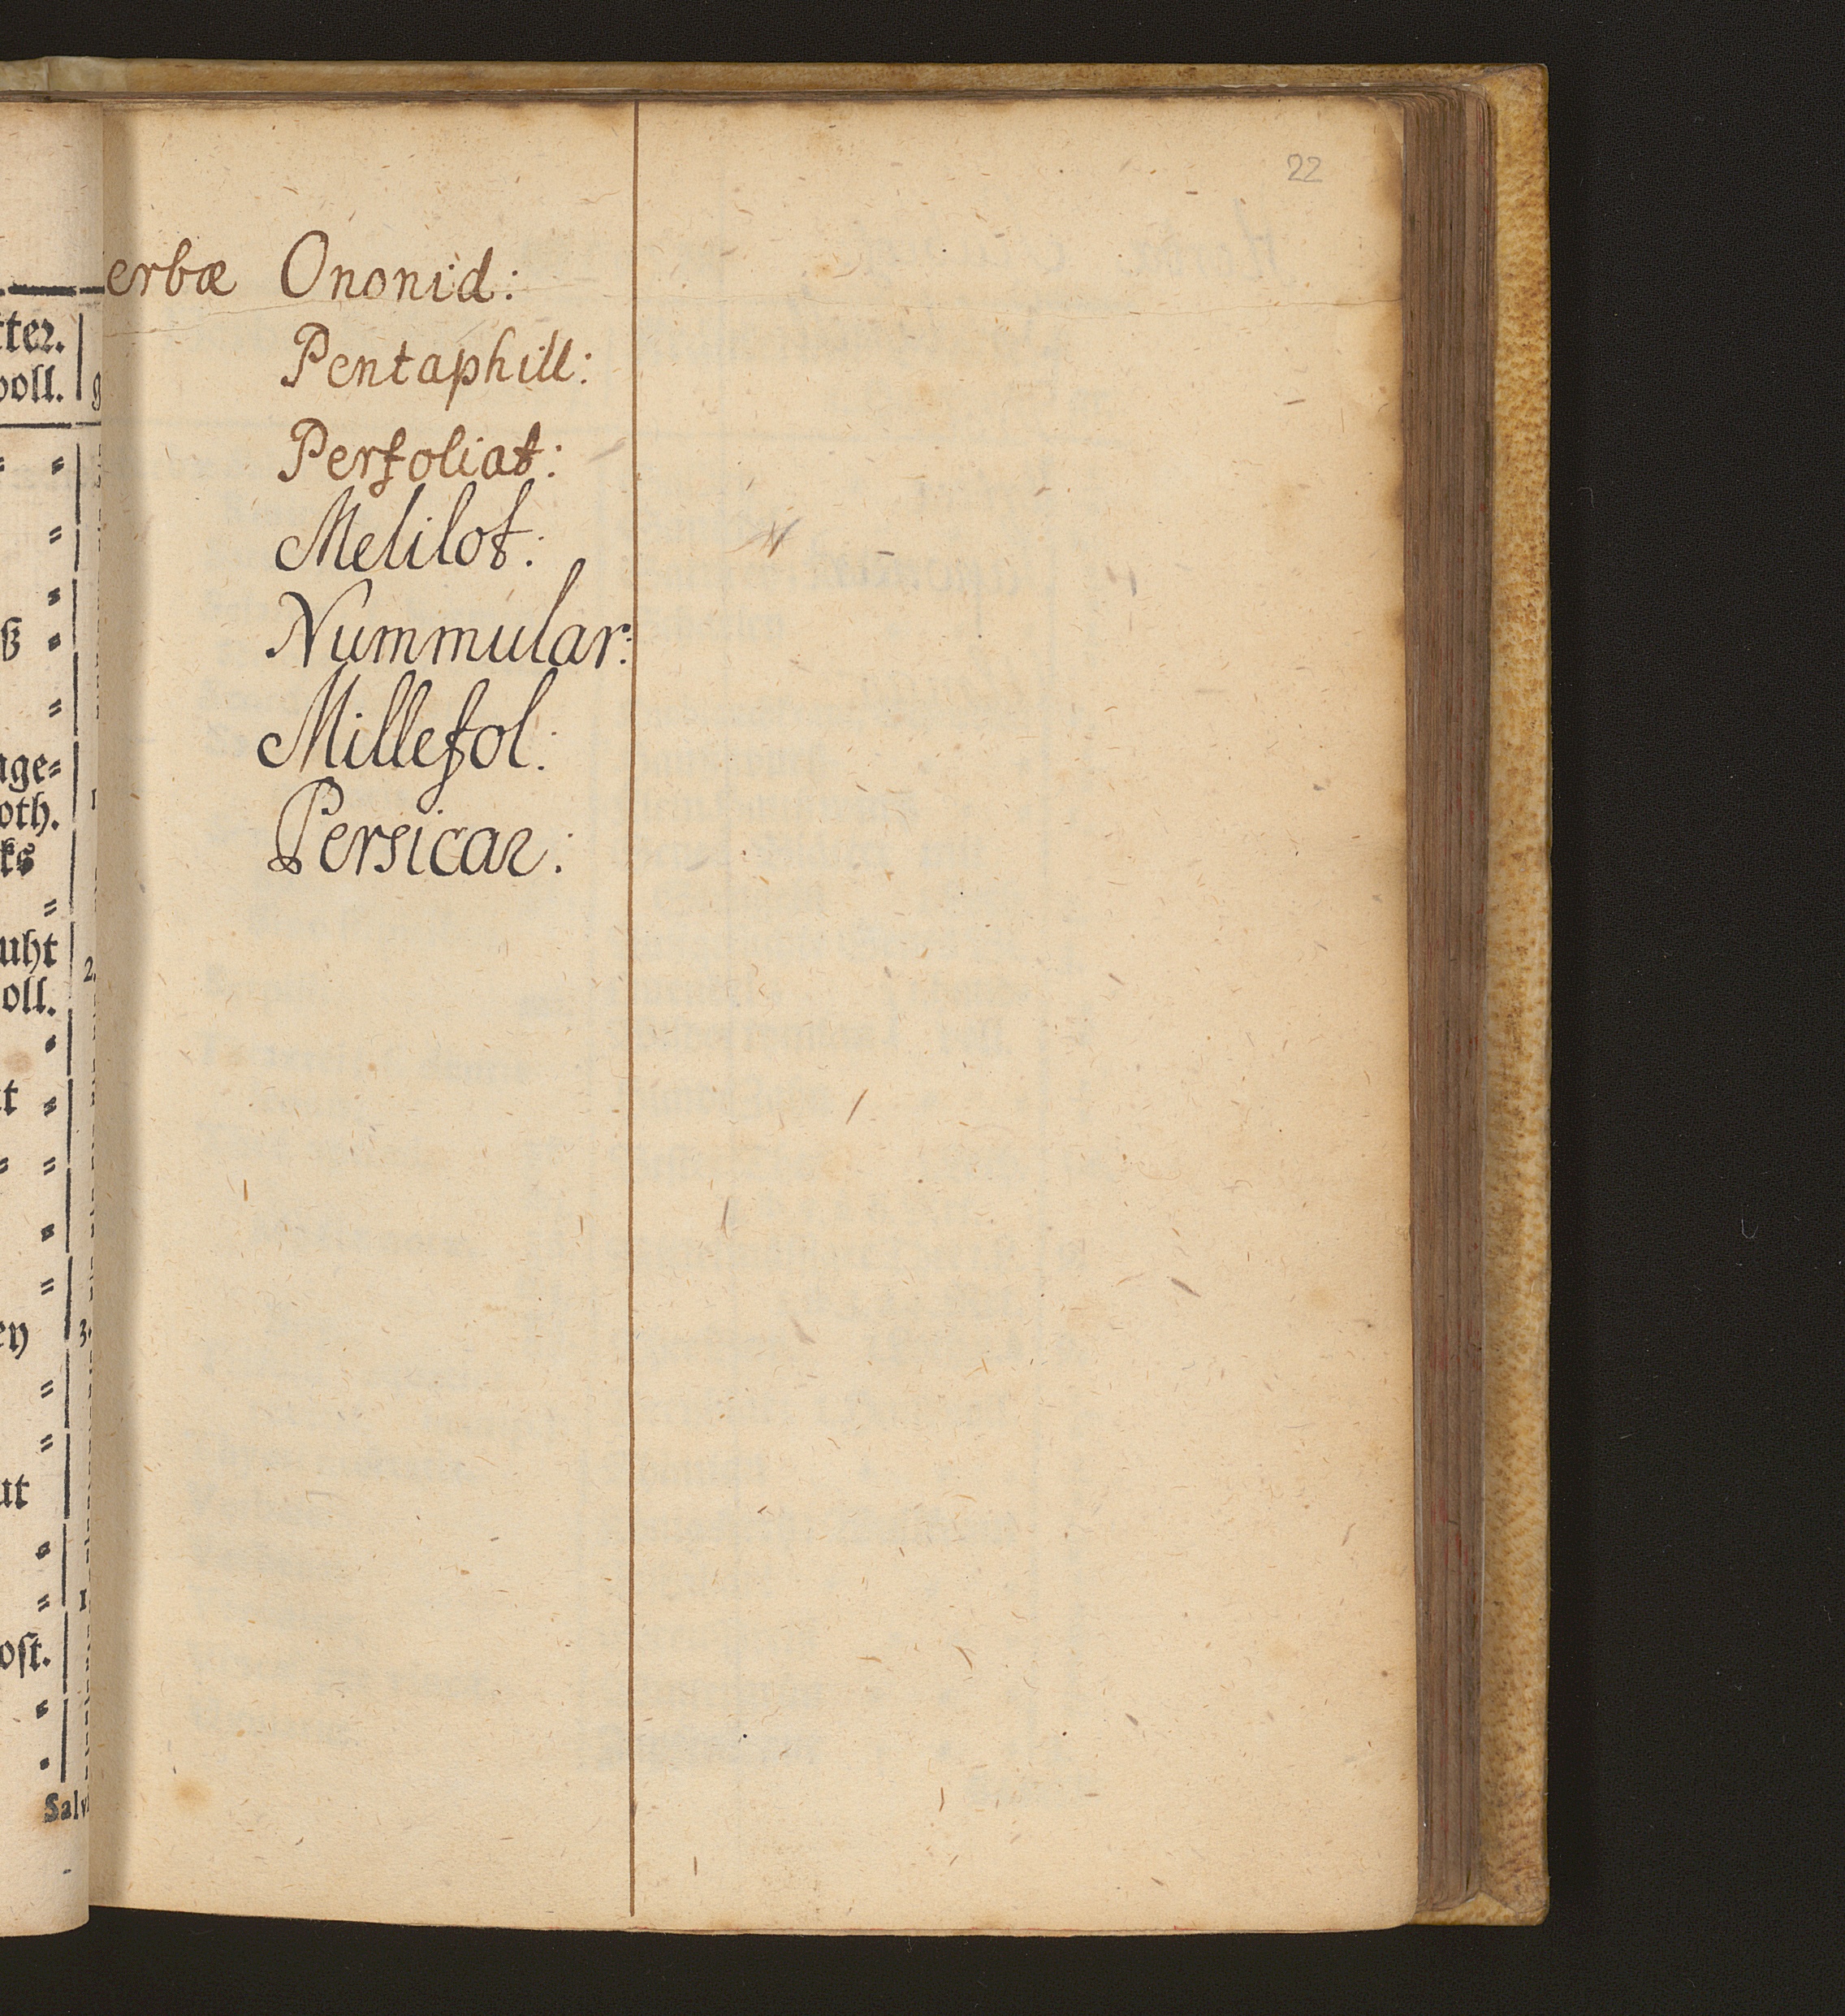 22
erbæ Ononid:
Pentaphill:
Perfoliat:
Melilot:
Nummular:
Millefol:
Persicar:
tter.
oll.
ß
age=
oth.
ks
uht
oll.
2.
3.
ey
ut
ost.
Salv